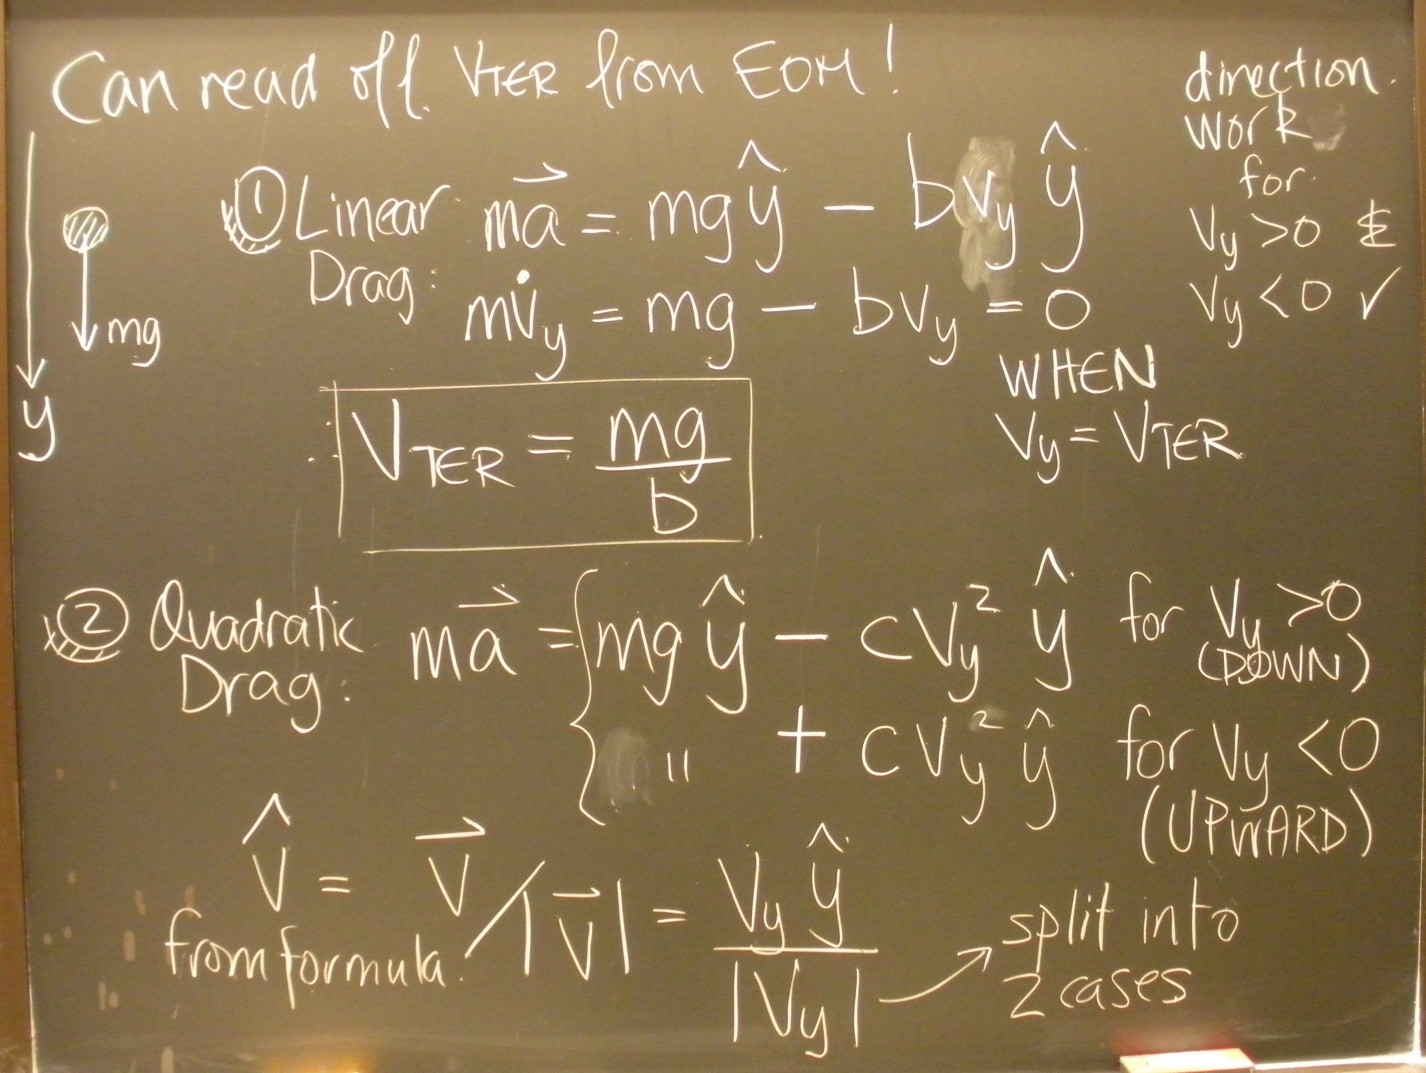 Can read off VTER from EOM!
direction.
work
for
Vy >0 &
Vy <0 ✓
① Linear Drag: ma⃗ = mg ŷ − bvy ŷ
mv̇y = mg − bvy = 0
WHEN
Vy = VTER
mg
y
∴ VTER = mg/b
② Quadratic Drag: ma⃗ = { mg ŷ − cVy² ŷ for Vy >0 (DOWN)
" + cVy² ŷ for Vy <0 (UPWARD)
V̂ = V⃗/|V⃗| = Vy ŷ/|Vy|
from formula.
split into
2 cases